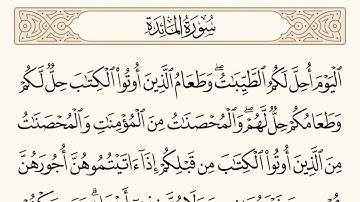 سُورَةُ المَائِدَةِ
ٱلۡيَوۡمَ أُحِلَّ لَكُمُ ٱلطَّيِّبَٰتُۖ وَطَعَامُ ٱلَّذِينَ أُوتُواْ ٱلۡكِتَٰبَ حِلّٞ لَّكُمۡ
وَطَعَامُكُمۡ حِلّٞ لَّهُمۡۖ وَٱلۡمُحۡصَنَٰتُ مِنَ ٱلۡمُؤۡمِنَٰتِ وَٱلۡمُحۡصَنَٰتُ
مِنَ ٱلَّذِينَ أُوتُواْ ٱلۡكِتَٰبَ مِن قَبۡلِكُمۡ إِذَآ ءَاتَيۡتُمُوهُنَّ أُجُورَهُنَّ